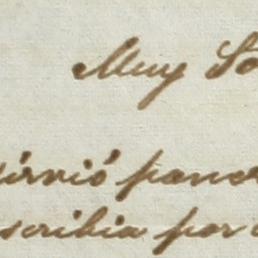 Muy So
sirvió pone
scribia por